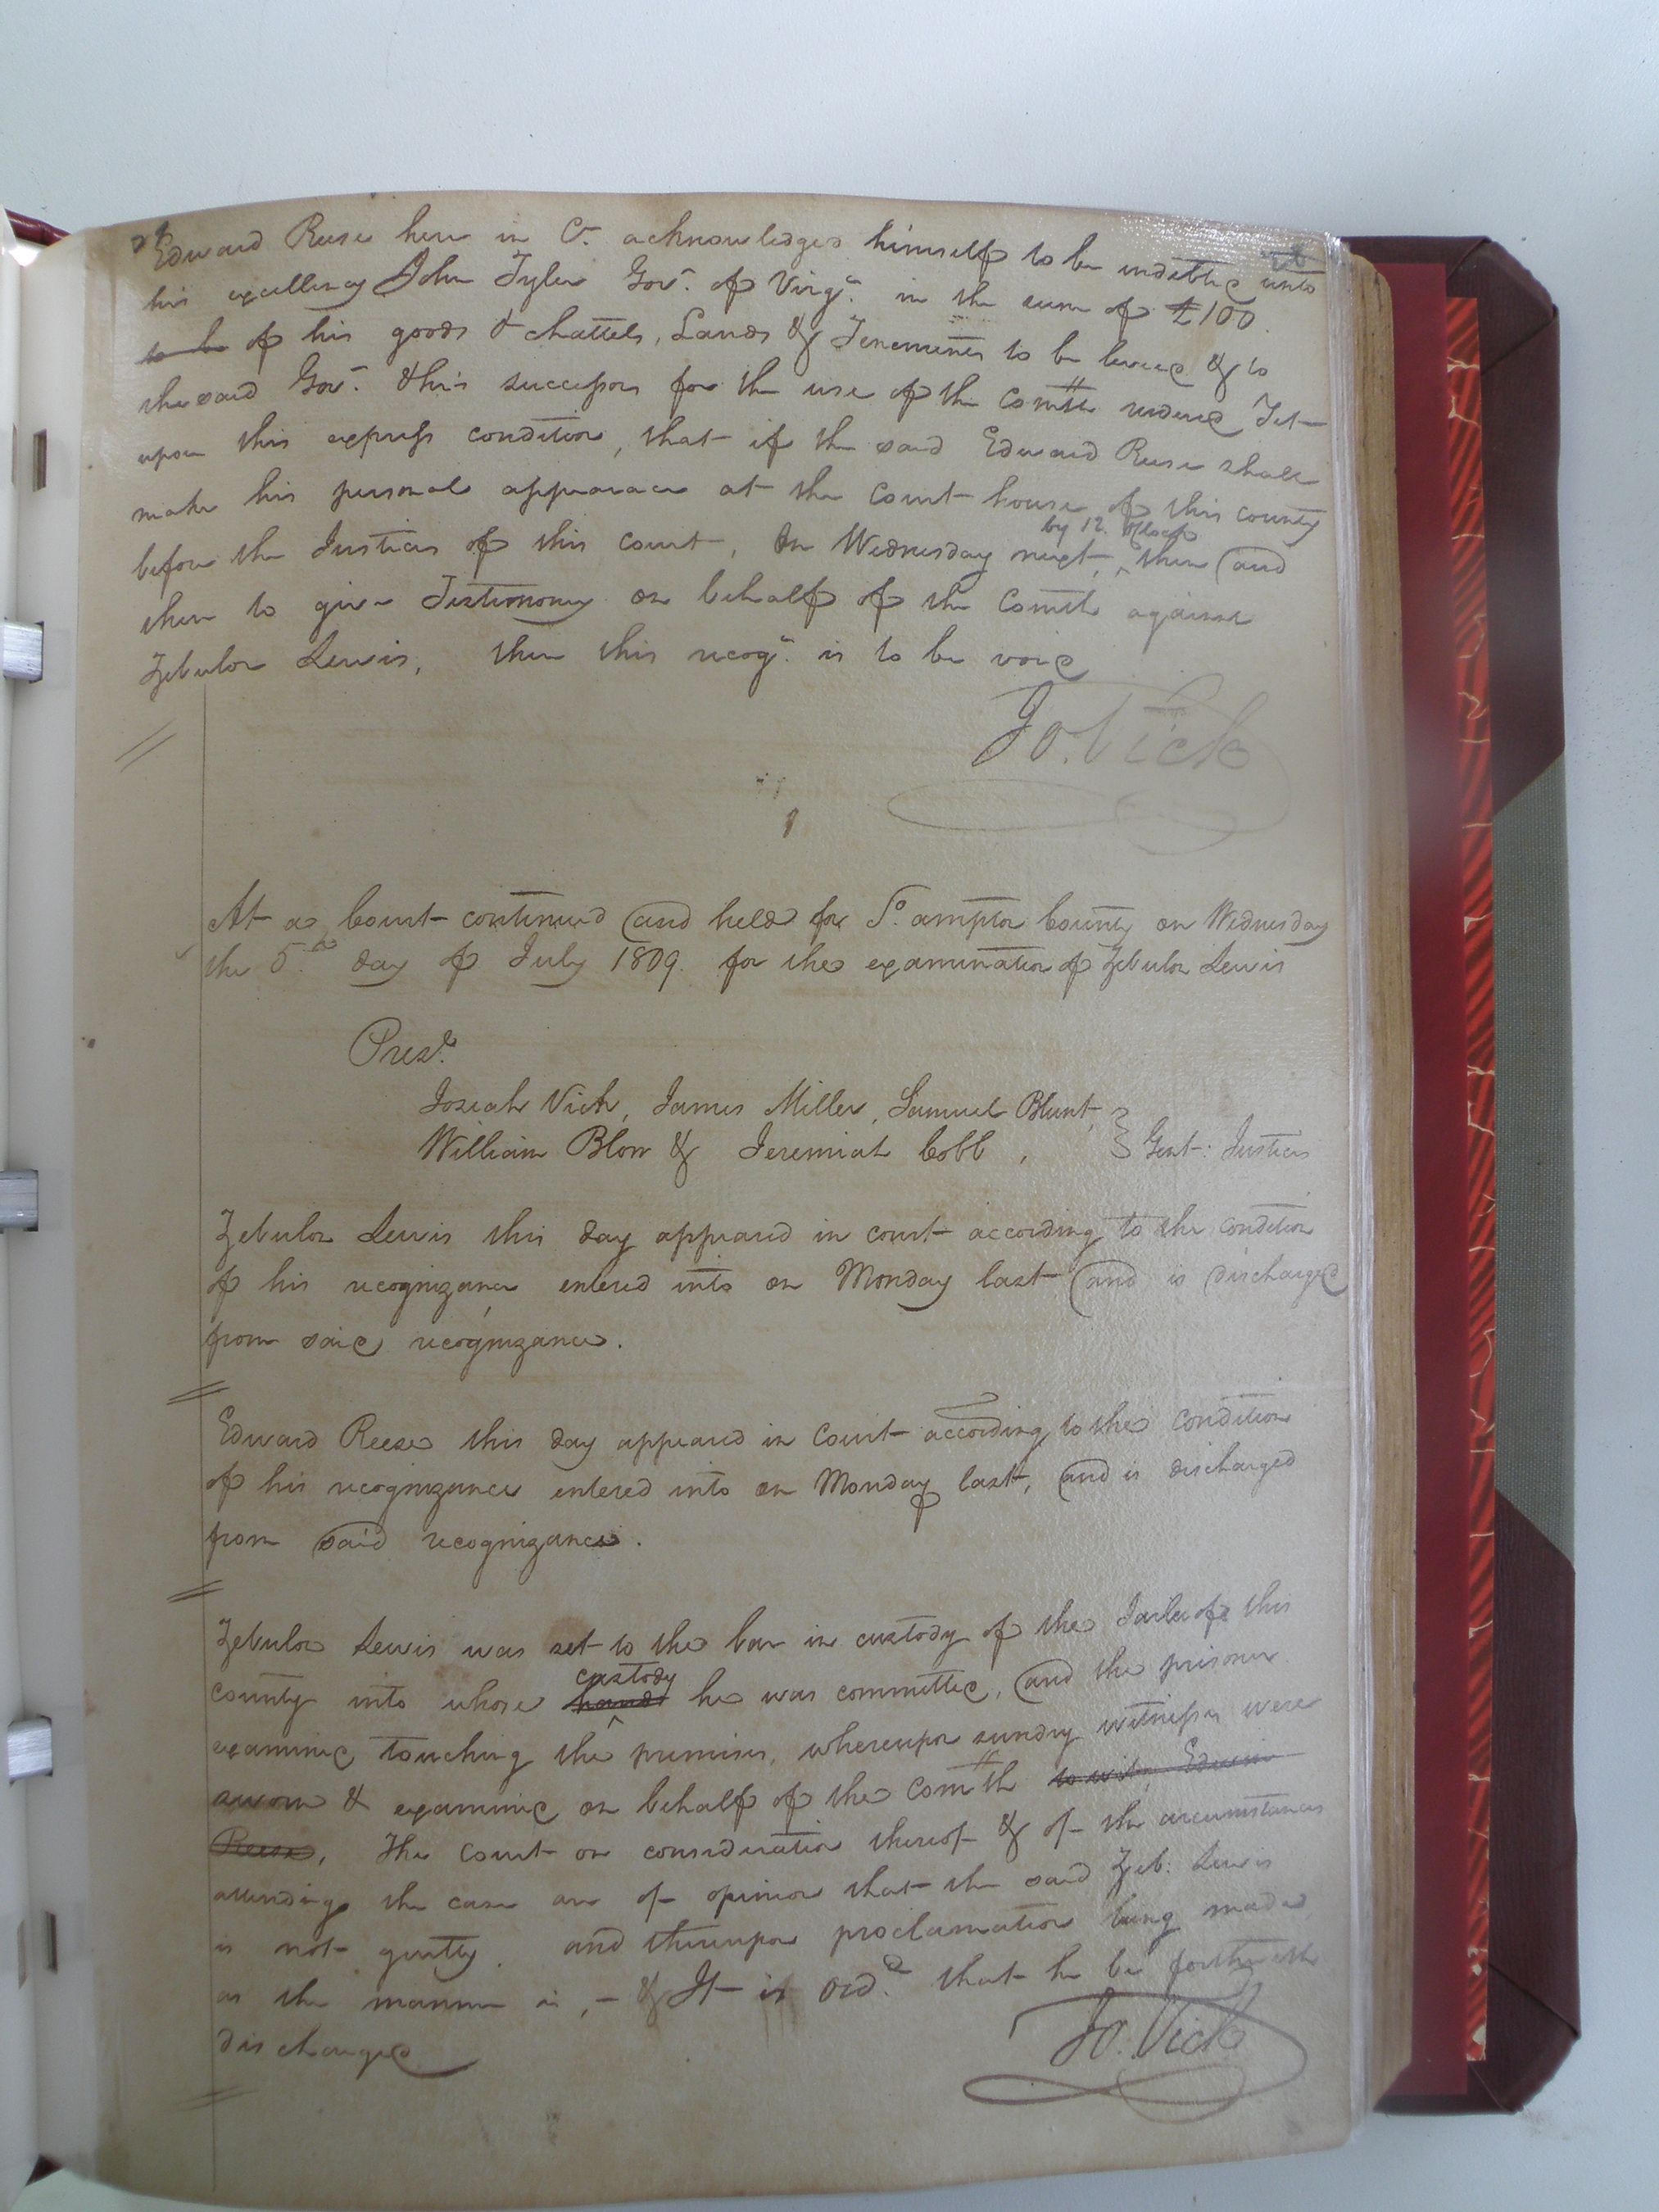 Edward Reese here in Ct. acknowledges himself to be indebted unto
his excellency John Tyler Govr. of Virga. in the sum of £100.
to be of his goods & chattels, Lands & Tenements to be levied & to
the said Govr. & his successors for the use of the Comlth rendered Yet
upon this express condition, that if the said Edward Reese shall
make his personal appearance at the Court house of this county
before the Justices of this court, on Wednesday next, by 12. OClock then and
there to give Testimony on behalf of the Comlth against
Zebulon Lewis, then this recogn. is to be void
Jo. Vick
At a Court continued and held for So.ampton County on Wednesday
the 5th day of July 1809. for the examination of Zebulon Lewis
Prest.
Josiah Vick, James Miller, Samuel Blunt,
William Blow & Jeremiah Cobb, } Gent: Justices
Zebulon Lewis this day appeared in court according to the condition
of his recognizance entered into on Monday last and is discharged
from said recognizance.
Edward Reese this day appeared in Court according to the condition
of his recognizance entered into on Monday last, and is discharged
from said recognizance.
Zebulon Lewis was set to the bar in custody of the Jailer of this
county into whose hands custody he was committed, and the prisoner
examined touching the premises, whereupon sundry witnesses were
sworn & examined on behalf of the Comlth to wit, Edward
Reese, The Court on consideration thereof & of the circumstances
attending the case are of opinion that the said Zeb: Lewis
is not guilty. and thereupon proclamation being made
as the manner is, - & It is ord. that he be forthwith
discharged
Jo. Vick